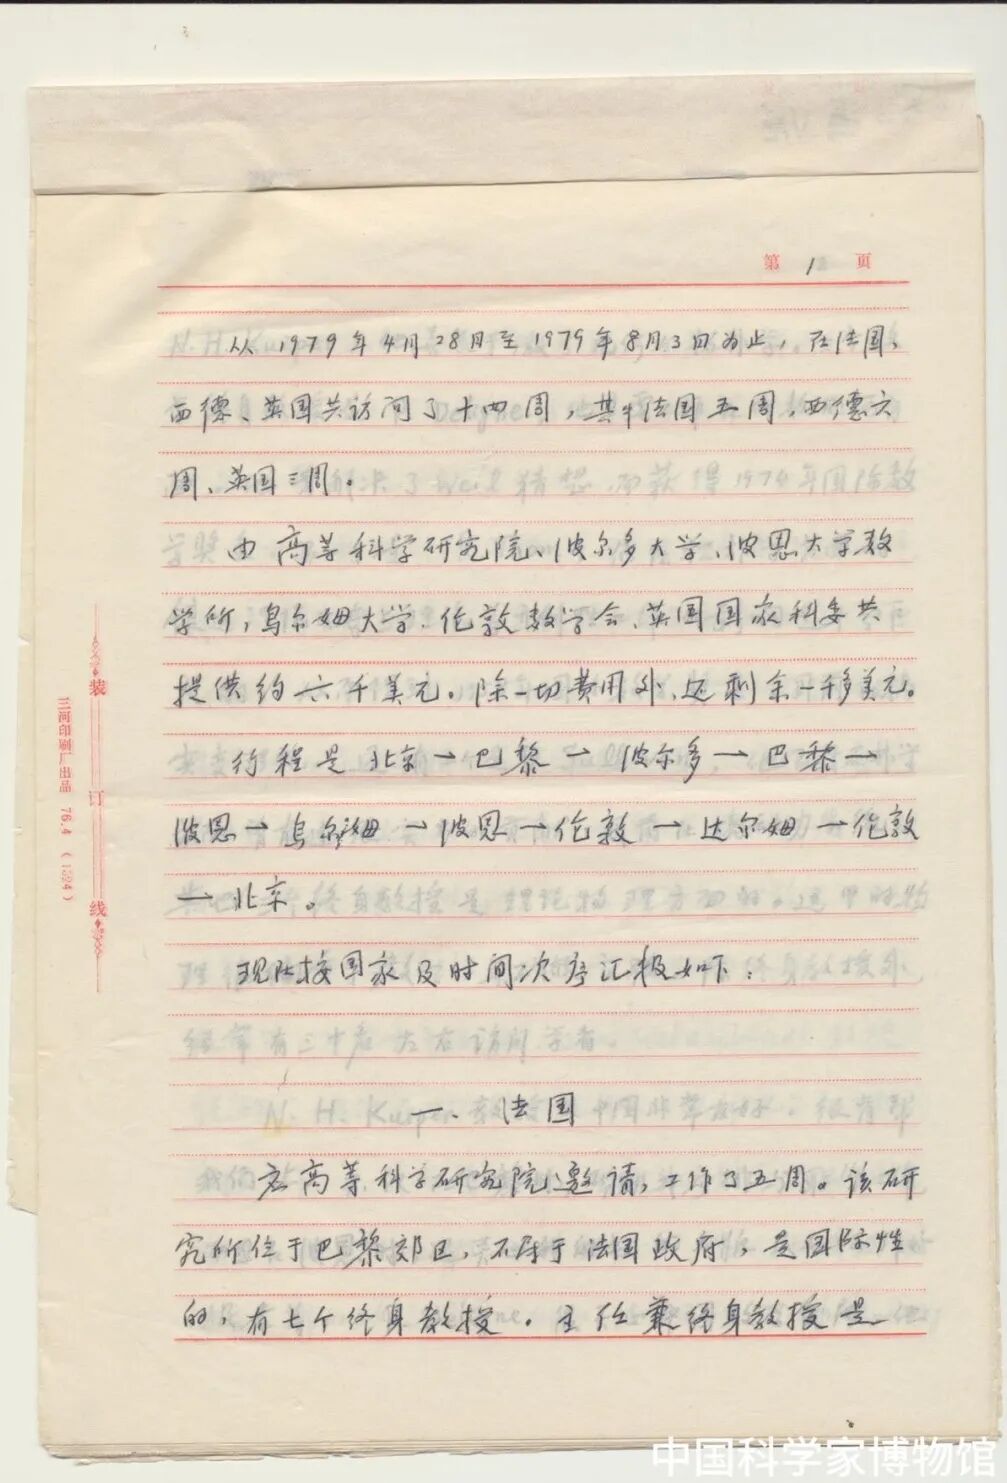 第 1 页
从1979年4月28日至1979年8月3日为止,在法国、
西德、英国共访问了十四周,其中法国五周,西德六
周、英国三周。
由高等科学研究院、波尔多大学、波恩大学数
学所,乌尔姆大学、伦敦数学会、英国国家科委共
提供约六千美元。除一切费用外,还剩余一千多美元。
行程是北京→巴黎→波尔多→巴黎→
波恩→乌尔姆→波恩→伦敦→达尔姆→伦敦
→北京。
现将按国家及时间次序汇报如下:
一、法国
应高等科学研究院邀请,工作了五周。该研
究所位于巴黎郊区,不属于法国政府,是国际性
的,有七个终身教授。主任兼终身教授是
装订线
三河印刷厂出品 76.4 (1324)
中国科学家博物馆